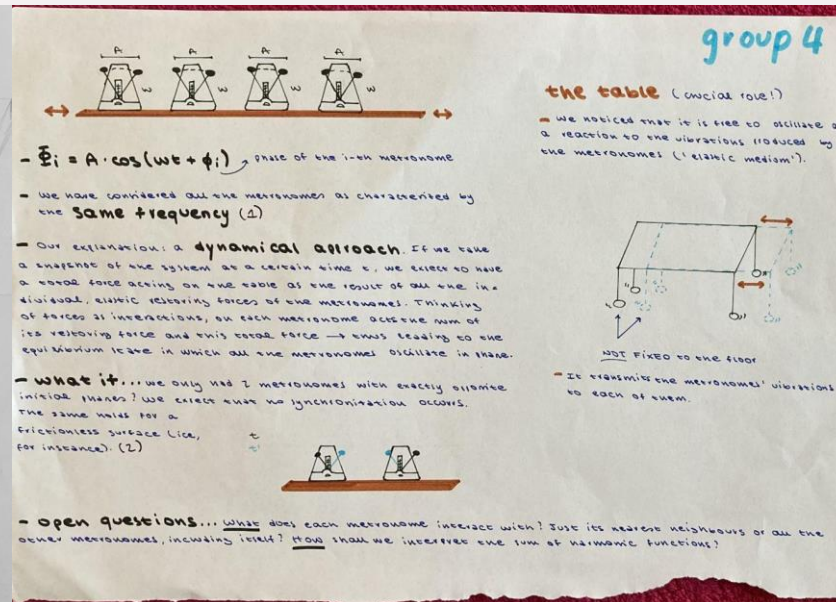 group 4
A A A A
ω ω ω ω
- Φi = A · cos(ωt + ϕi) → phase of the i-th metronome
- we have considered all the metronomes as characterised by
the same frequency (1)
- Our explanation: a dynamical approach. If we take
a snapshot of the system at a certain time t, we expect to have
a total force acting on the table as the result of all the in-
dividual, elastic restoring forces of the metronomes. Thinking
of forces as interactions, on each metronome acts the sum of
its restoring force and this total force → thus leading to the
equilibrium state in which all the metronomes oscillate in phase.
- what if... we only had 2 metronomes with exactly opposite
initial phases? We expect that no synchronization occurs.
The same holds for a
frictionless surface (ice,
for instance). (2)
t
t'
- open questions... What does each metronome interact with? Just its nearest neighbours or all the
other metronomes, including itself? How shall we interpret the sum of harmonic functions?
the table (crucial role!)
- we noticed that it is free to oscillate as
a reaction to the vibrations produced by
the metronomes ('elastic medium').
NOT FIXED to the floor
- It transmits the metronomes' vibrations
to each of them.